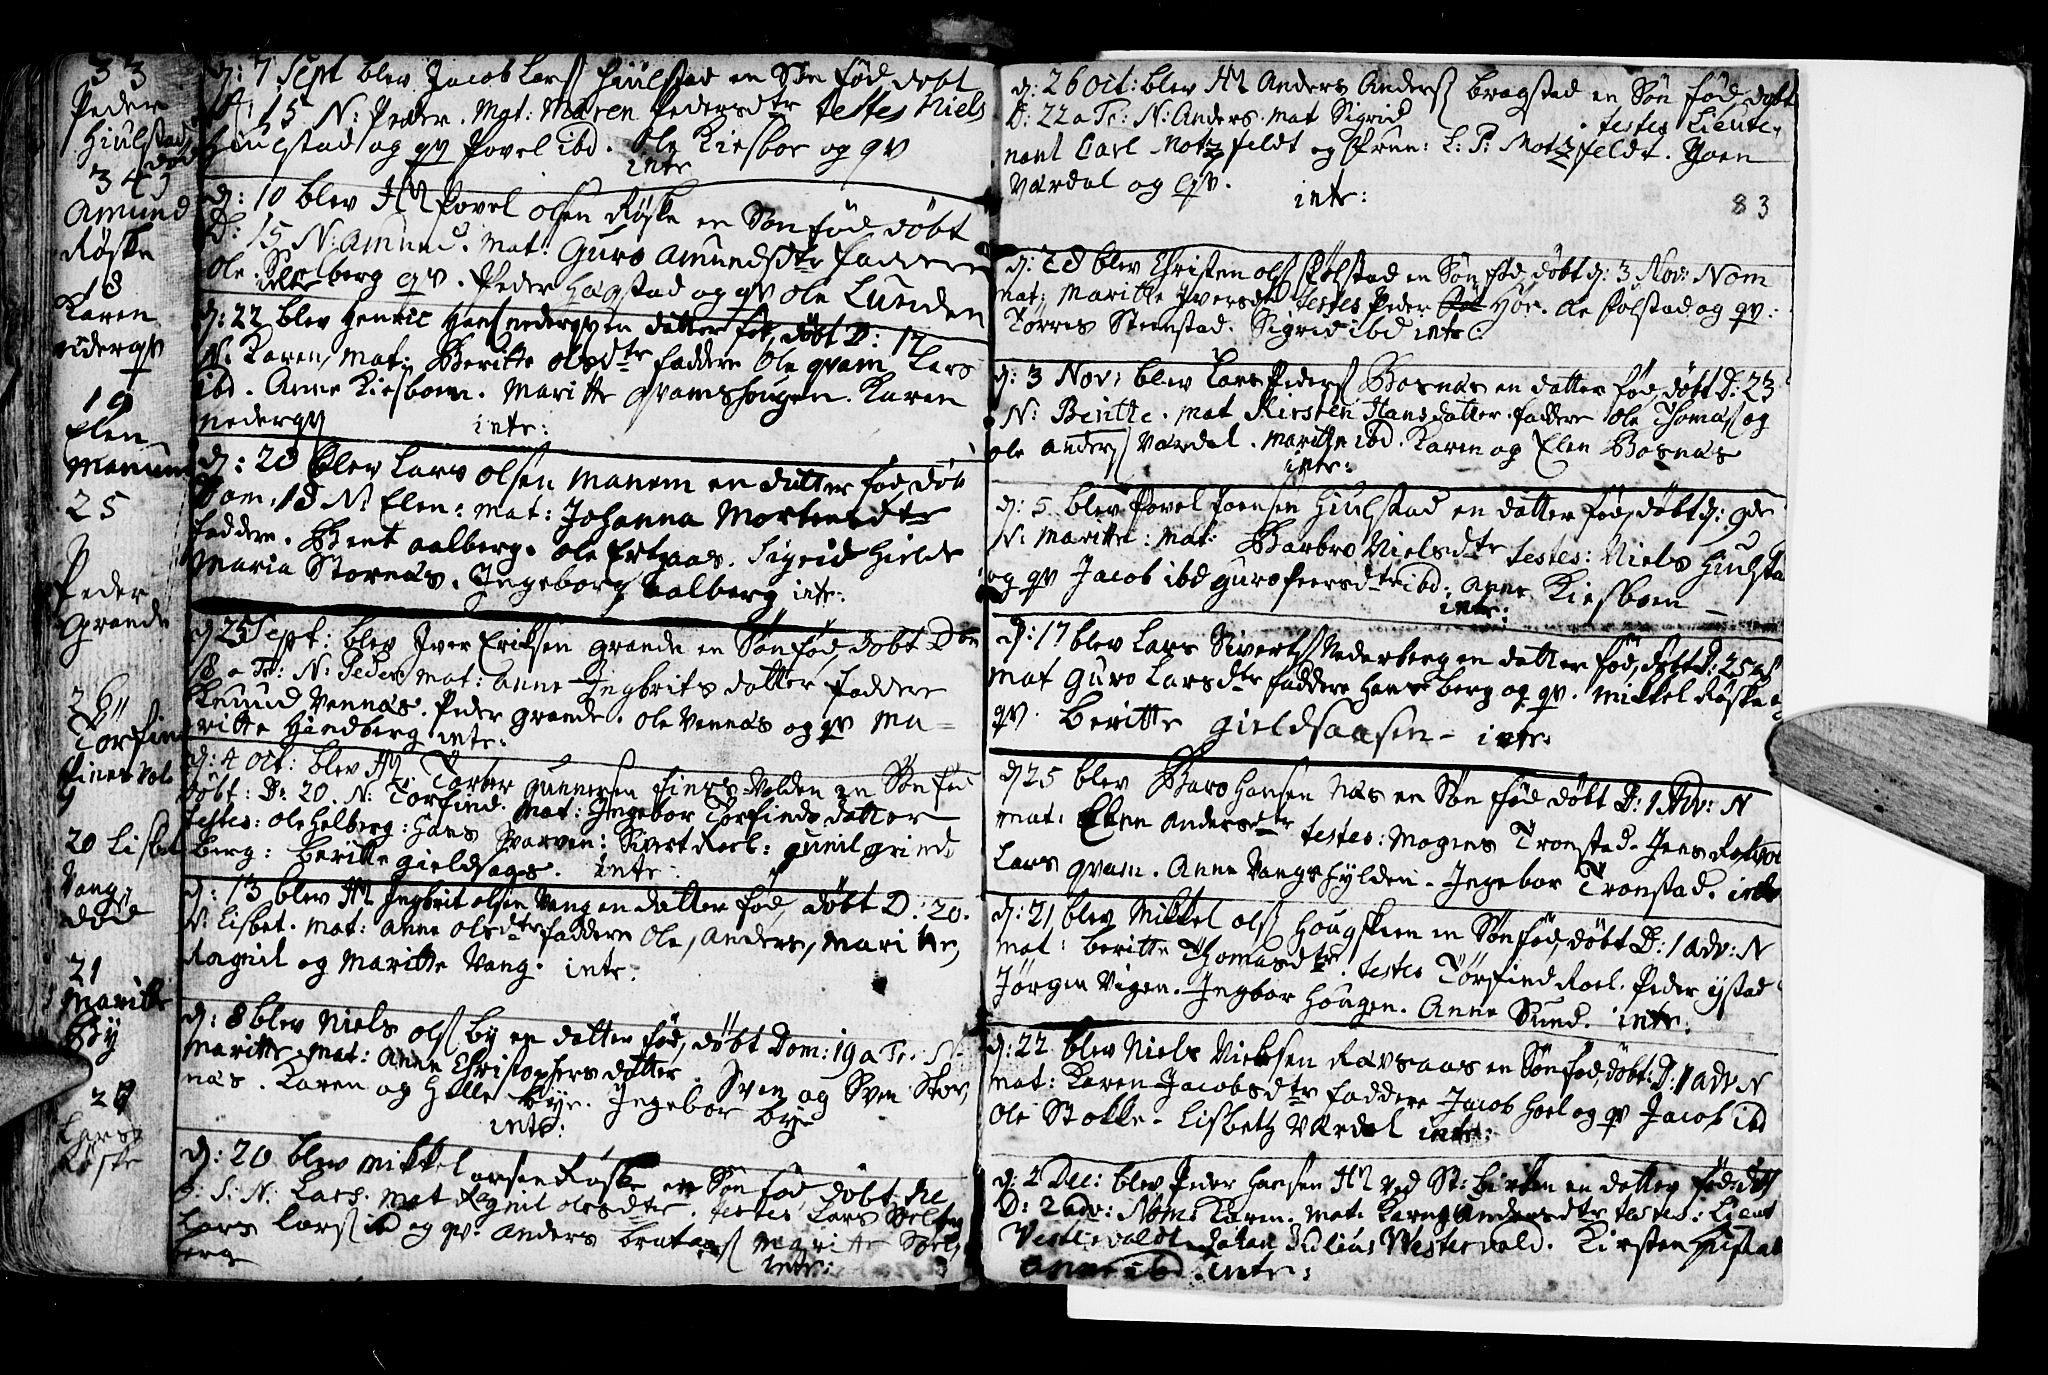 33
Peder
Hiulstad
død
34
Amund
Røske
18
Karen
nidergv
19
Elen
Manum
25
Peder
Grande
26
Torfin
finesvol
20 Lisbet
Vang
død
21
Maritte
By
28
Lars
Røske
d: 7 Sept blev Jacob Lars Hiulstad en Søn fød døbt
15 N: Peder. Mat: Maren Pedersdtr testes Niels
Hiulstad og qv Povel ibd. Ole Kiesboe og qv
intr
d: 10 blev Povel olsen Røske en Søn fød døbt
D: 15 N: Amund. mat: Guro Amundsdtr faddere
ole berg qv. Peder Hagstad og qv ole Lunden
d: 22 blev Henric Hans nedergv en datter fød, døbt D: 17
N: Karen, mat: Beritte olsdtr faddere Ole qvam Lars
ibd. Anne Kiesboen. Maritte qvamshougen. Karen
nedergv intr:
d: 28 blev Lars olsen Manum en datter fød, døbt
Dom: 18 N: Elen: mat: Johanna Mortensdtr
faddere. Bent aalberg. ole Ertzaas. Sigrid Hielde
Maria Stornæs. Ingeborg aalberg intr:
d 25 Sept: blev Iver Eriksen grande en Søn fød, døbt Dom
18 a Tr: N: Peder, mat: anne Ingbrits datter faddere
Knuud Vennæs. Peder grande. ole vennæs og qv ma-
ritte Hindberg intr:
d: 4 Oct: blev Torber gunnersen finesvolden en Søn fød
døbt: D: 20. N: Torfind. mat: Ingebor Torfinds datter
testes: ole helberg: Hans Svarven: Sivert Roel: gunil grind
berg: beritte gieldsaas. intr:
d: 13 blev Ingbrit olsen Vang en datter fød, døbt D: 20.
N: Lisbet. mat: anne olsdtr faddere Ole, Anders, Maritte,
Ragnil og Maritte Vang. intr:
d: 8 blev Niels ols by en datter fød, døbt Dom: 19 a Tr: N:
maritte. mat: Anne Christophersdatter. Sven og Sven Stor,
næs. Karen og Helle bye. Ingebor bye
intr:
d: 20 blev mikkel Larsen Røske en Søn fød døbt
N: Lars. mat Ragnil olesdtr. testes Lars
Lars Lars ibd og qv. Anders maritte
berg intr:
d: 26 Oct: blev Anders Anders bragstad en Søn fød døbt
D: 22 a Tr: N: Anders. mat Sigrid testes Lieute,
nant Carl Motzfeldt og L: P: Motzfeldt. Joen
Værdal og qv. intr:
83
d: 28 blev Christen ols Følstad en Søn fød, døbt d: 3 Nov: Nom
mat: Maritte Iversdtr testes Peder Hoe. ole Følstad og qv:
Torris Steenstad. Sigrid ibd intr:
d: 3 Nov: blev Lars Peders Bosnæs en datter fød, døbt D: 23
N: Benthe. mat Kirsten Hansdatter. faddere Ole Thomas og
ole anders Værdal. Maritte ibd. Karen og Elen Bosnæs
intr:
d: 5. blev Povel Joensen Hiulstad en datter fød, døbt d: 9de
N: Maritte: mat: Barbro Nielsdtr testes: Niels Hiulsta
og qv Jacob ibd guro Peersdtr ibd: anne Kiesboen
intr:
d: 17 blev Lars Siverts Nederberg en datter fød, døbt D: 25
mat Guro Larsdtr faddere Hans berg og qv. Mikkel Røske
qv. Beritte gieldsaasen - intr:
d 25 blev Baro Hansen Næs en Søn fød døbt D: 1 Adv: N
mat: Elen andersdtr testes: Mogens Tronstad. Jens
Lars qvam. Anne Vangshylden. Ingebor Tronstad. intr
d: 21 blev Mikkel ols Hougskeen en Søn fød, døbt D: 1 adv: N
mat: beritte Thomasdtr. testes Torfind Roel. Peder ystad
Jørgen Vigen. Ingbor Hougen. Anne Sund. intr.
d: 22 blev Niels Nielsen Ravsaas en Søn fød, døbt: D: 1 adv N
mat: Karen Jacobsdtr faddere Jacob Hoel og qv Jacob ibd
Ole Stokke. Lisbetz Værdal intr:
d: 2 Dec: blev Peder Hansen ved St: en datter fød, døbt
D: 2 adv: Nom: Karen. mat: Karen Andersdtr testes: Lieut
Vestervaldt Johan Julius Westervald. Kirsten
Anne ibd. intr: